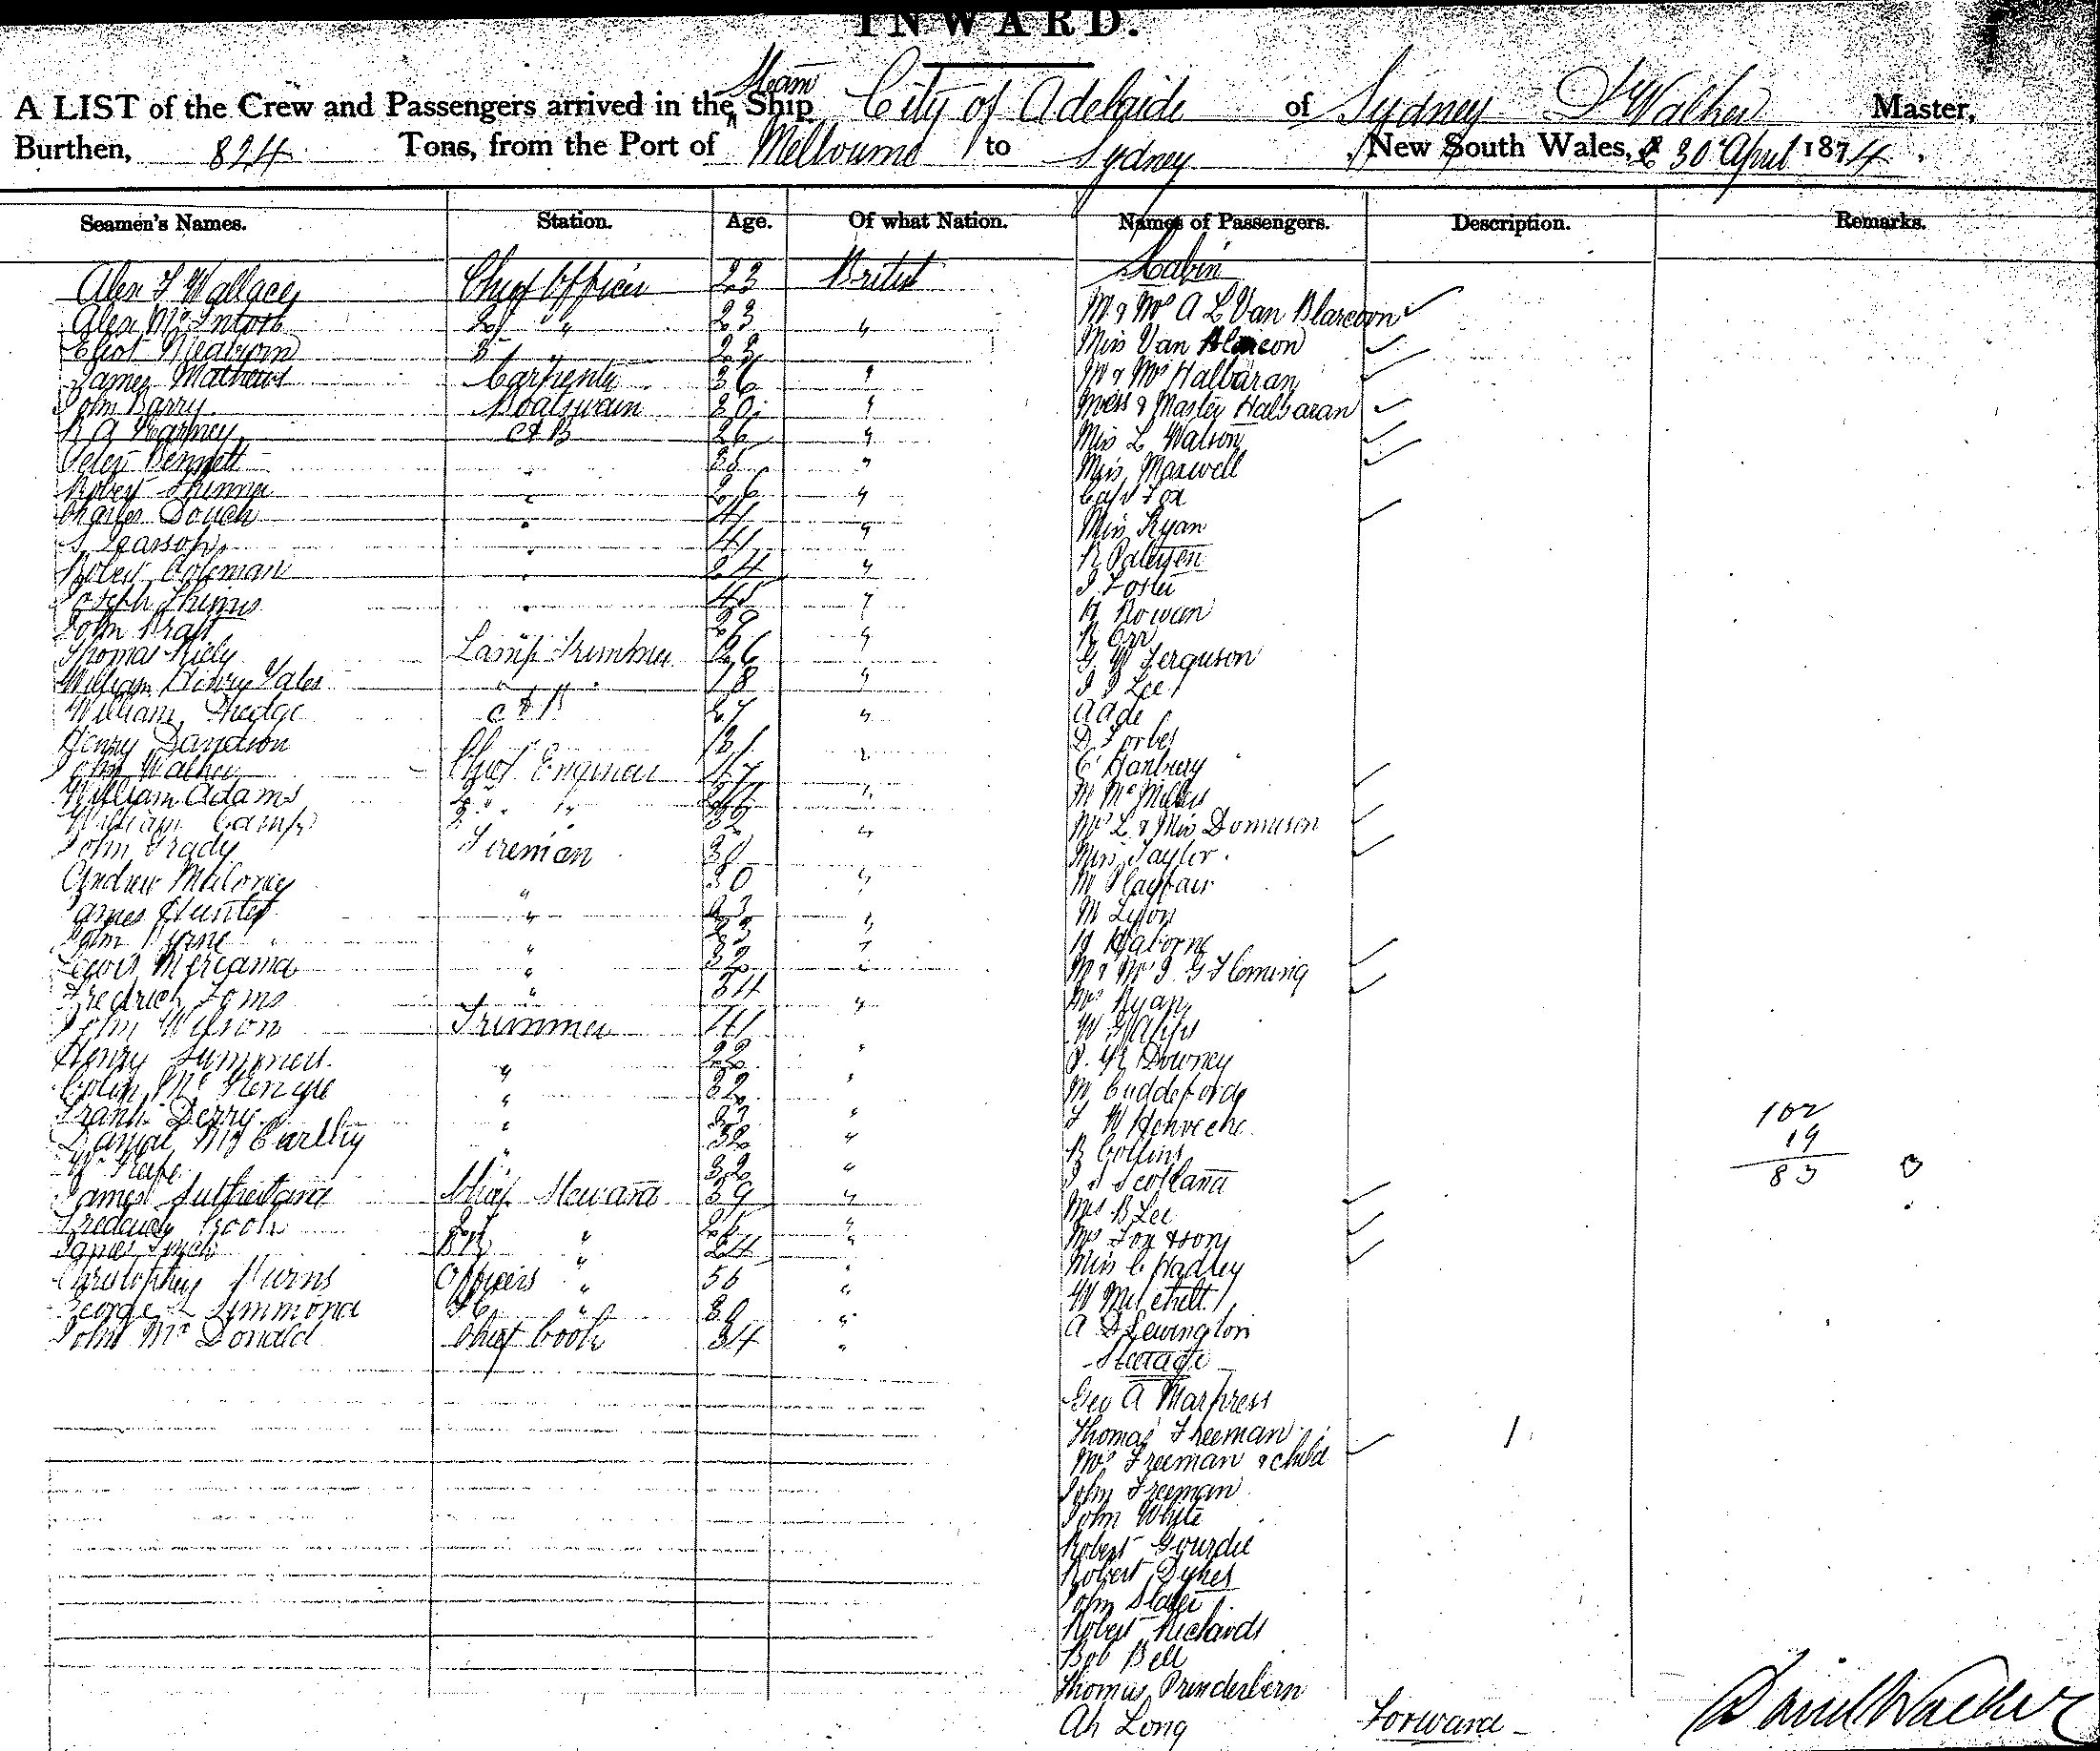 INWARD.
A LIST of the Crew and Passengers arrived in the Steam Ship City of Adelaide of Sydney D Walker Master,
Burthen, 824 Tons, from the Port of Melbourne to Sydney, New South Wales, 30 April 1874.
Seamen's Names. Station. Age. Of what Nation. Names of Passengers. Description. Remarks.
Cabin
Alex F Wallace Chief Officer 23 British Mr & Mrs A L Van Blarcom
Alex McIntosh 2d " " 23 " Miss Van Blarcom
3 " 23 Mr & Mrs Halbaran
James Mathews Carpenter 36 " Miss & Master Halbaran
John Barry Boatswain 30 " Miss L Watson
R A Kearney A B 26 " Miss Maxwell
Peter Bennett " 35 " Capt Fox
Robert Skinner " 26 " Miss Ryan
Charles Douch " 41 " R Paterson
S Pearson " 41 J Foster
Robert Coleman " 24 " H Rowan
Joseph " 45 " R Orr
John 29 " G W Ferguson
Thomas Kiely Lamp Trimmer 26 " J J Lee
William Henry Yates " 18 " A Ade
William A B 27 " D Forbes
Henry Davidson 31 " C Hanbury
John Walker Chief Engineer 47 " M McMillis
William Adams 2d " " Mrs L & Miss Domieson
William Camp 3 " " 32 " Miss Taylor
John Grady Fireman 30 M Playfair
Andrew Maloney " 30 " M Lyon
James Hunter " 23 " H Osborne
John Byrne " 23 " Mr & Mrs J G Fleming
Lewis " 32 " Mrs Ryan
Fredrick Toms " 34 "
John Wilson Trimmer 41 J. Downey
Henry Summers " 22 " M Cuddeford
Colin McKenzie " 32 " F W
Frank Derry " 23 " R Collins
Danial McCarthy " 32 " J S Scotland
W 32 " Mrs B Lee
James Sutherland Chief Steward 39 " Mrs Fox & son
Frederick Cook 2d " 26 " Miss C Hadley
James Lynch " 24 " W Mitchell
Christopher Burns Officers " 56 " A D Lewington
George L Simmond " 30 " Steerage
John McDonald Chief Cook 34 " Geo A Marpress
Thomas Freeman
Mrs Freeman & child
John Freeman
John Whyte
Robert Gourdie
Robert Dykes
John Slater
Robert Richards
Bob Bell
Thomas Prenderbern
Ah Long Forward
102
19
83
David Walker